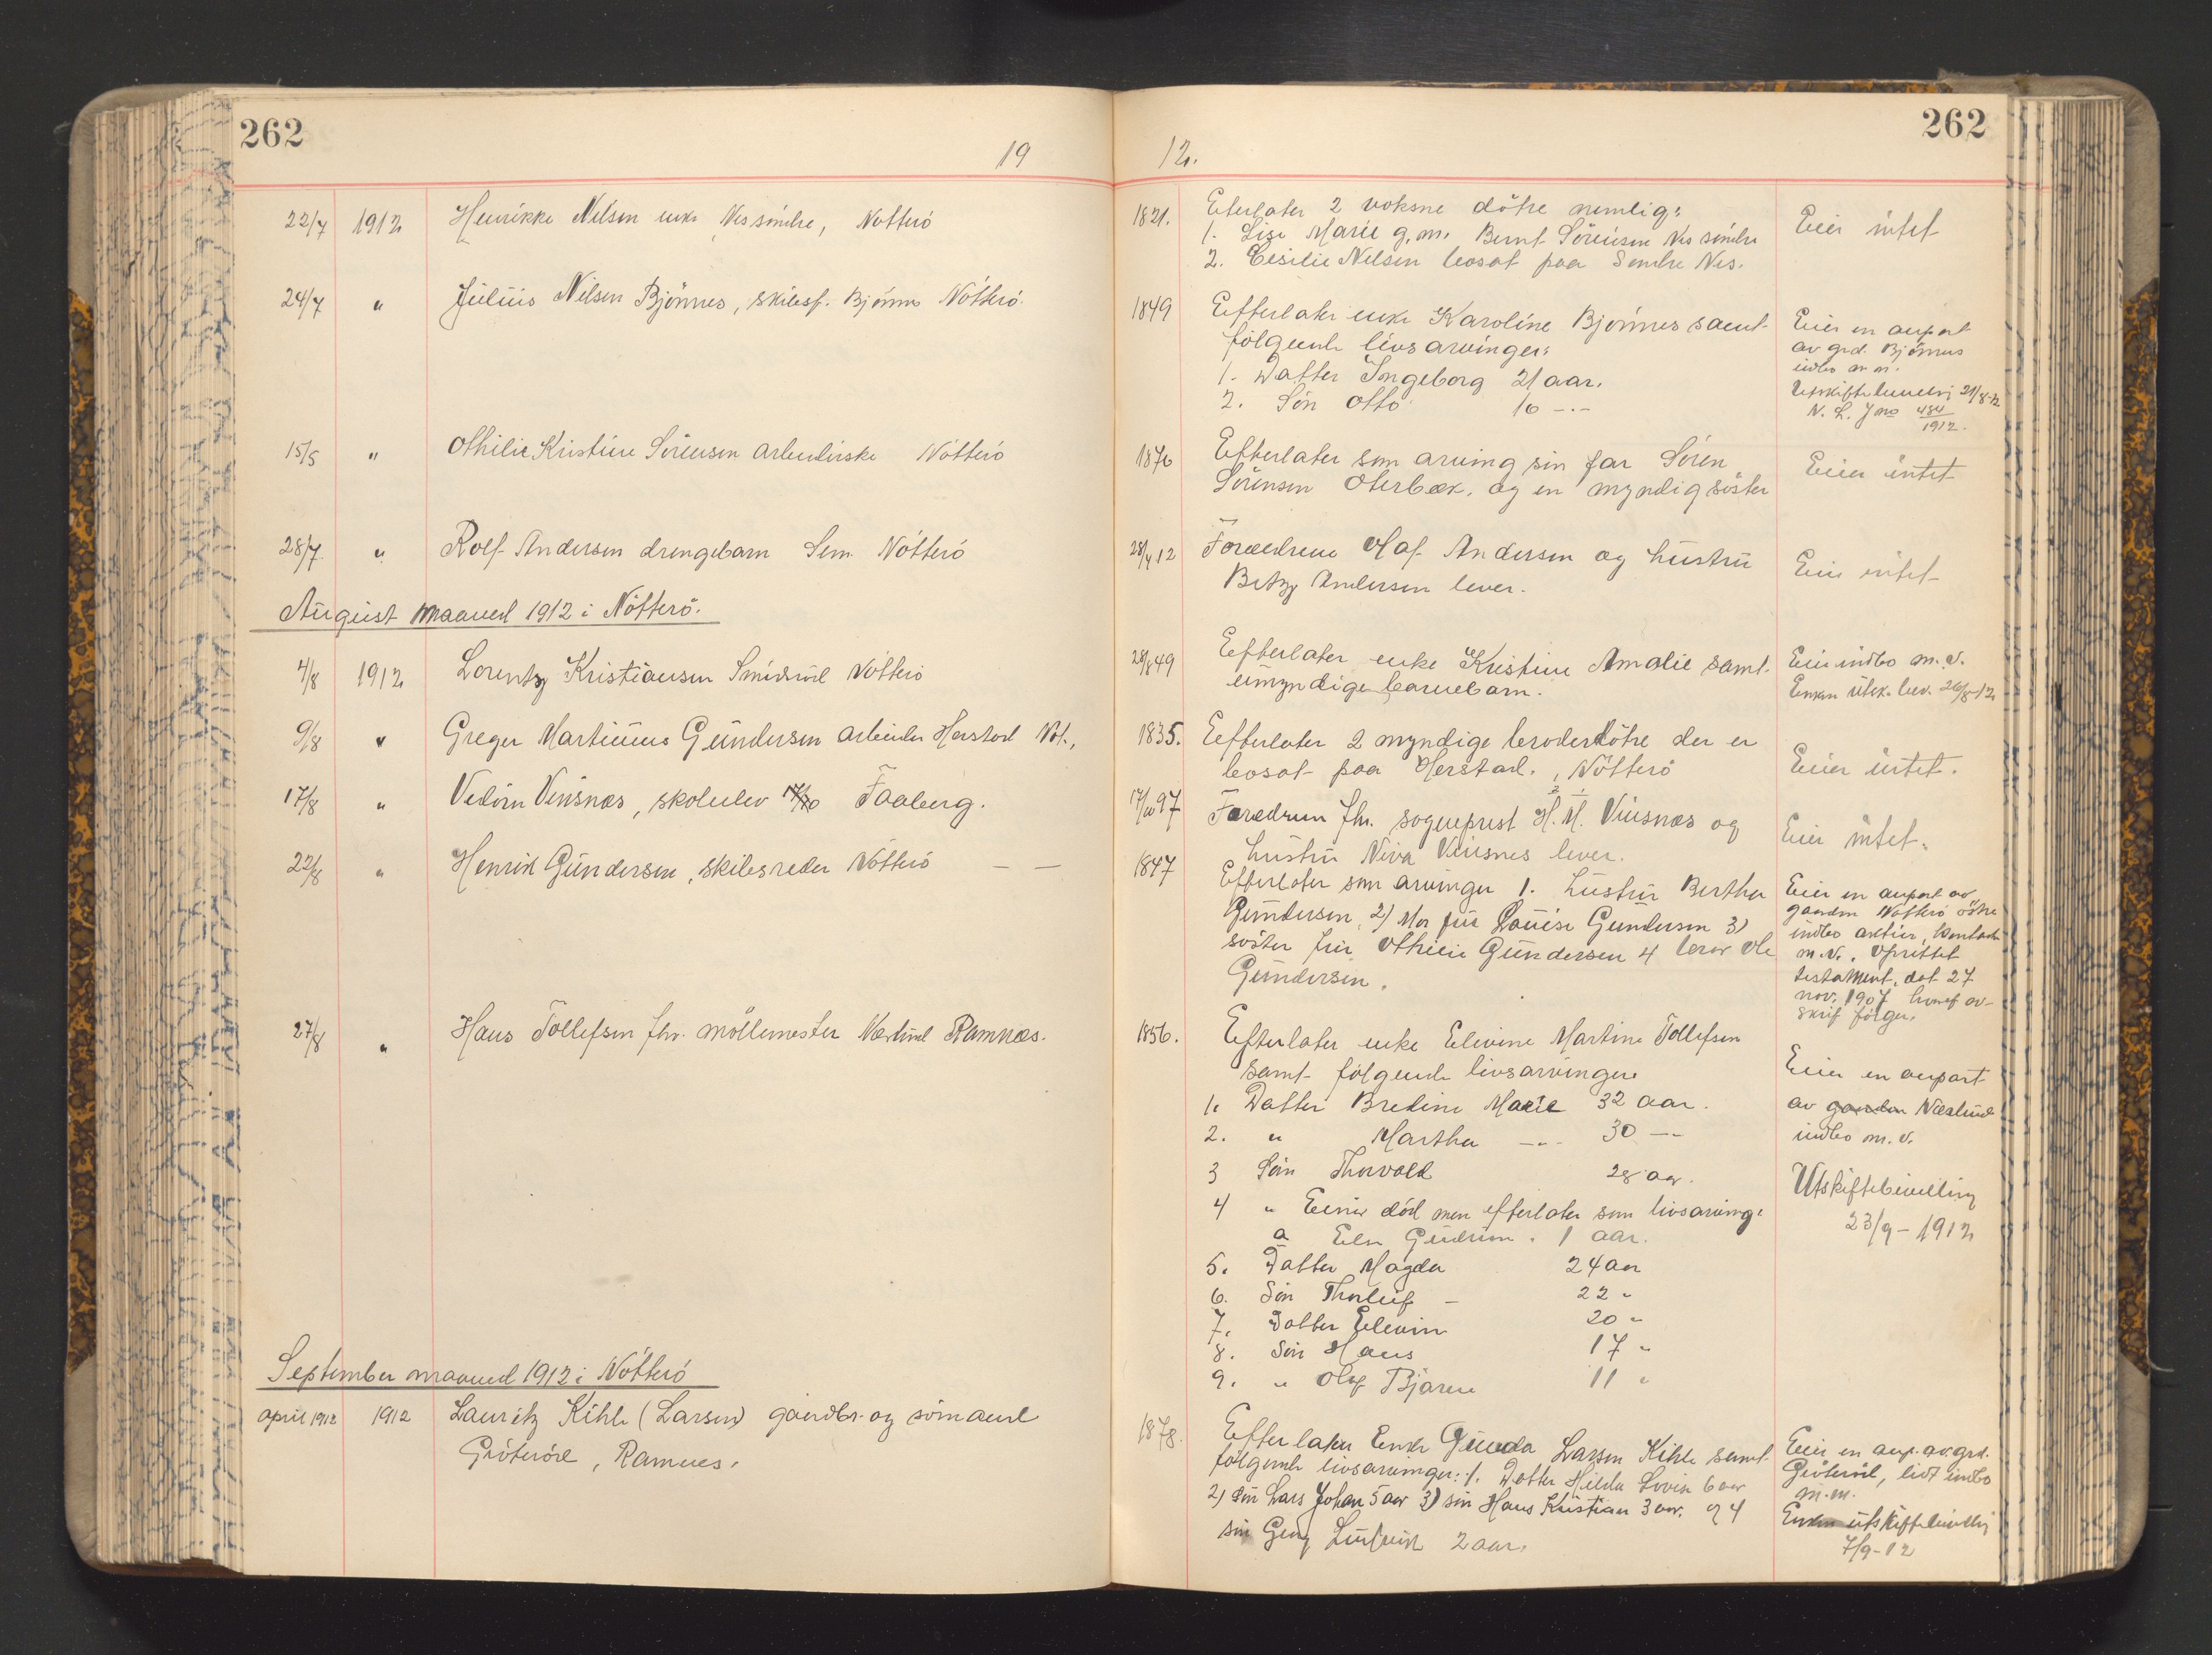 262
262
19 12.
22/7 1912 Henrikke Nilsen enke Nes söndre, Nötterö
1821. Eterlater 2 voksne dötre nemlig:
1. Lise Marie g.m. Bernt Sörensen Nes söndre
2. Cesilie Nilsen bosat paa Söndre Nes.
Eier intet
24/7 " Julius Nilsen Bjönnes, skibsf. Bjönnes Nötterö.
1849 Efterlater enke Karoline Bjönnes samt
fölgende livsarvinger:
1. Datter Ingeborg 21 aar.
2. Sön Otto 16 -.-
Eier en anpart
av grd. Bjönnes
indbo m m.
Utskiftebevilling 21/8-12
N. L. J no 484/1912.
15/5 " Othilie Kristine Sörensen arbeiderske Nötterö
1876 Efterlater som arving sin far Sören
Sörensen Oterbæk. og en myndig söster
Eier intet
28/7 " Rolf Andersen drengebarn Sem Nötterö
28/4 12 Forældrene Olaf Andersen og hustru
Betzy Andersen lever.
Eier intet
August maaned 1912 i Nötterö.
4/8 1912 Lorentz Kristiansen Smidsröd Nötterö
28/8 49 Efterlater enke Kristine Amalie samt
umyndige barnebarn.
Eier indbo m.v.
Enken utsk. bev. 26/8-12
9/8 " Greger Martinius Gundersen arbeider Herstad Nöt.,
1835. Eefterlater 2 myndige broderdötre der er
bosat paa Herstad., Nötterö
Eier intet.
17/8 " Vedörn Vinsnes, skoleelev 17/10 Faaberg.
17/10 97 Forældrene fhv. sogneprest H. H. Vinsnæs og
hustru Niva Vinsnes lever.
Eier intet.
22/8 " Henrik Gundersen, skibsreder Nötterö — —
1847 Efterlater som arvinger 1. hustru Bertha
Gundersen, 2) Mor fru Louise Gundersen 3)
söster fru Othilie Gundersen 4 bror Ole
Gundersen.
Eier en anpart av
gaarden Nötterö östre
indbo aktier, kontanter
m.v. Oprettet
testament, dat 27
nov. 1907 hvoraf av-
skrif fölger.
27/8 " Hans Tollefsen fhv. möllemester Næslund Ramnæs.
1856. Efterlater enke Elevine Martine Tollefsen
samt fölgende livsarvinger
1. Datter Bredine Marie 32 aar.
2. " Martha -.- 30 —
3 Sön Thorvald 28 aar.
4 " Einar död men efterlater som livsarving:
a Else Gudrun. 1 aar.
5. Datter Magda 24 aar
6. Sön Thorleif - 22 "
7. Datter Elevine 20 "
8. Sön Hans 17 "
9. " Olaf Bjarne 11 "
Eier en anpart
av gaarden Næslund
indbo m.v.
Utskiftebevilling
23/9-1912
September maaned 1912 i Nötterö
april 1912 1912 Lauritz Kihle (Larsen) gaardbr. og sömand
Gröteröd, Ramnes.
1878. Efterlater Enke Gunda Larsen Kihle samt
fölgende livsarvinger: 1. Datter Hilda Lovise 6 aar
2) Sön Lars Johan 5 aar 3) sön Hans Kristian 3 aar. og 4
sön Georg Ludvik 2 aar.
Eier en anp. av grd.
Gröteröd, lidt indbo
m.m.
Enken utskiftebevilling
7/9-12